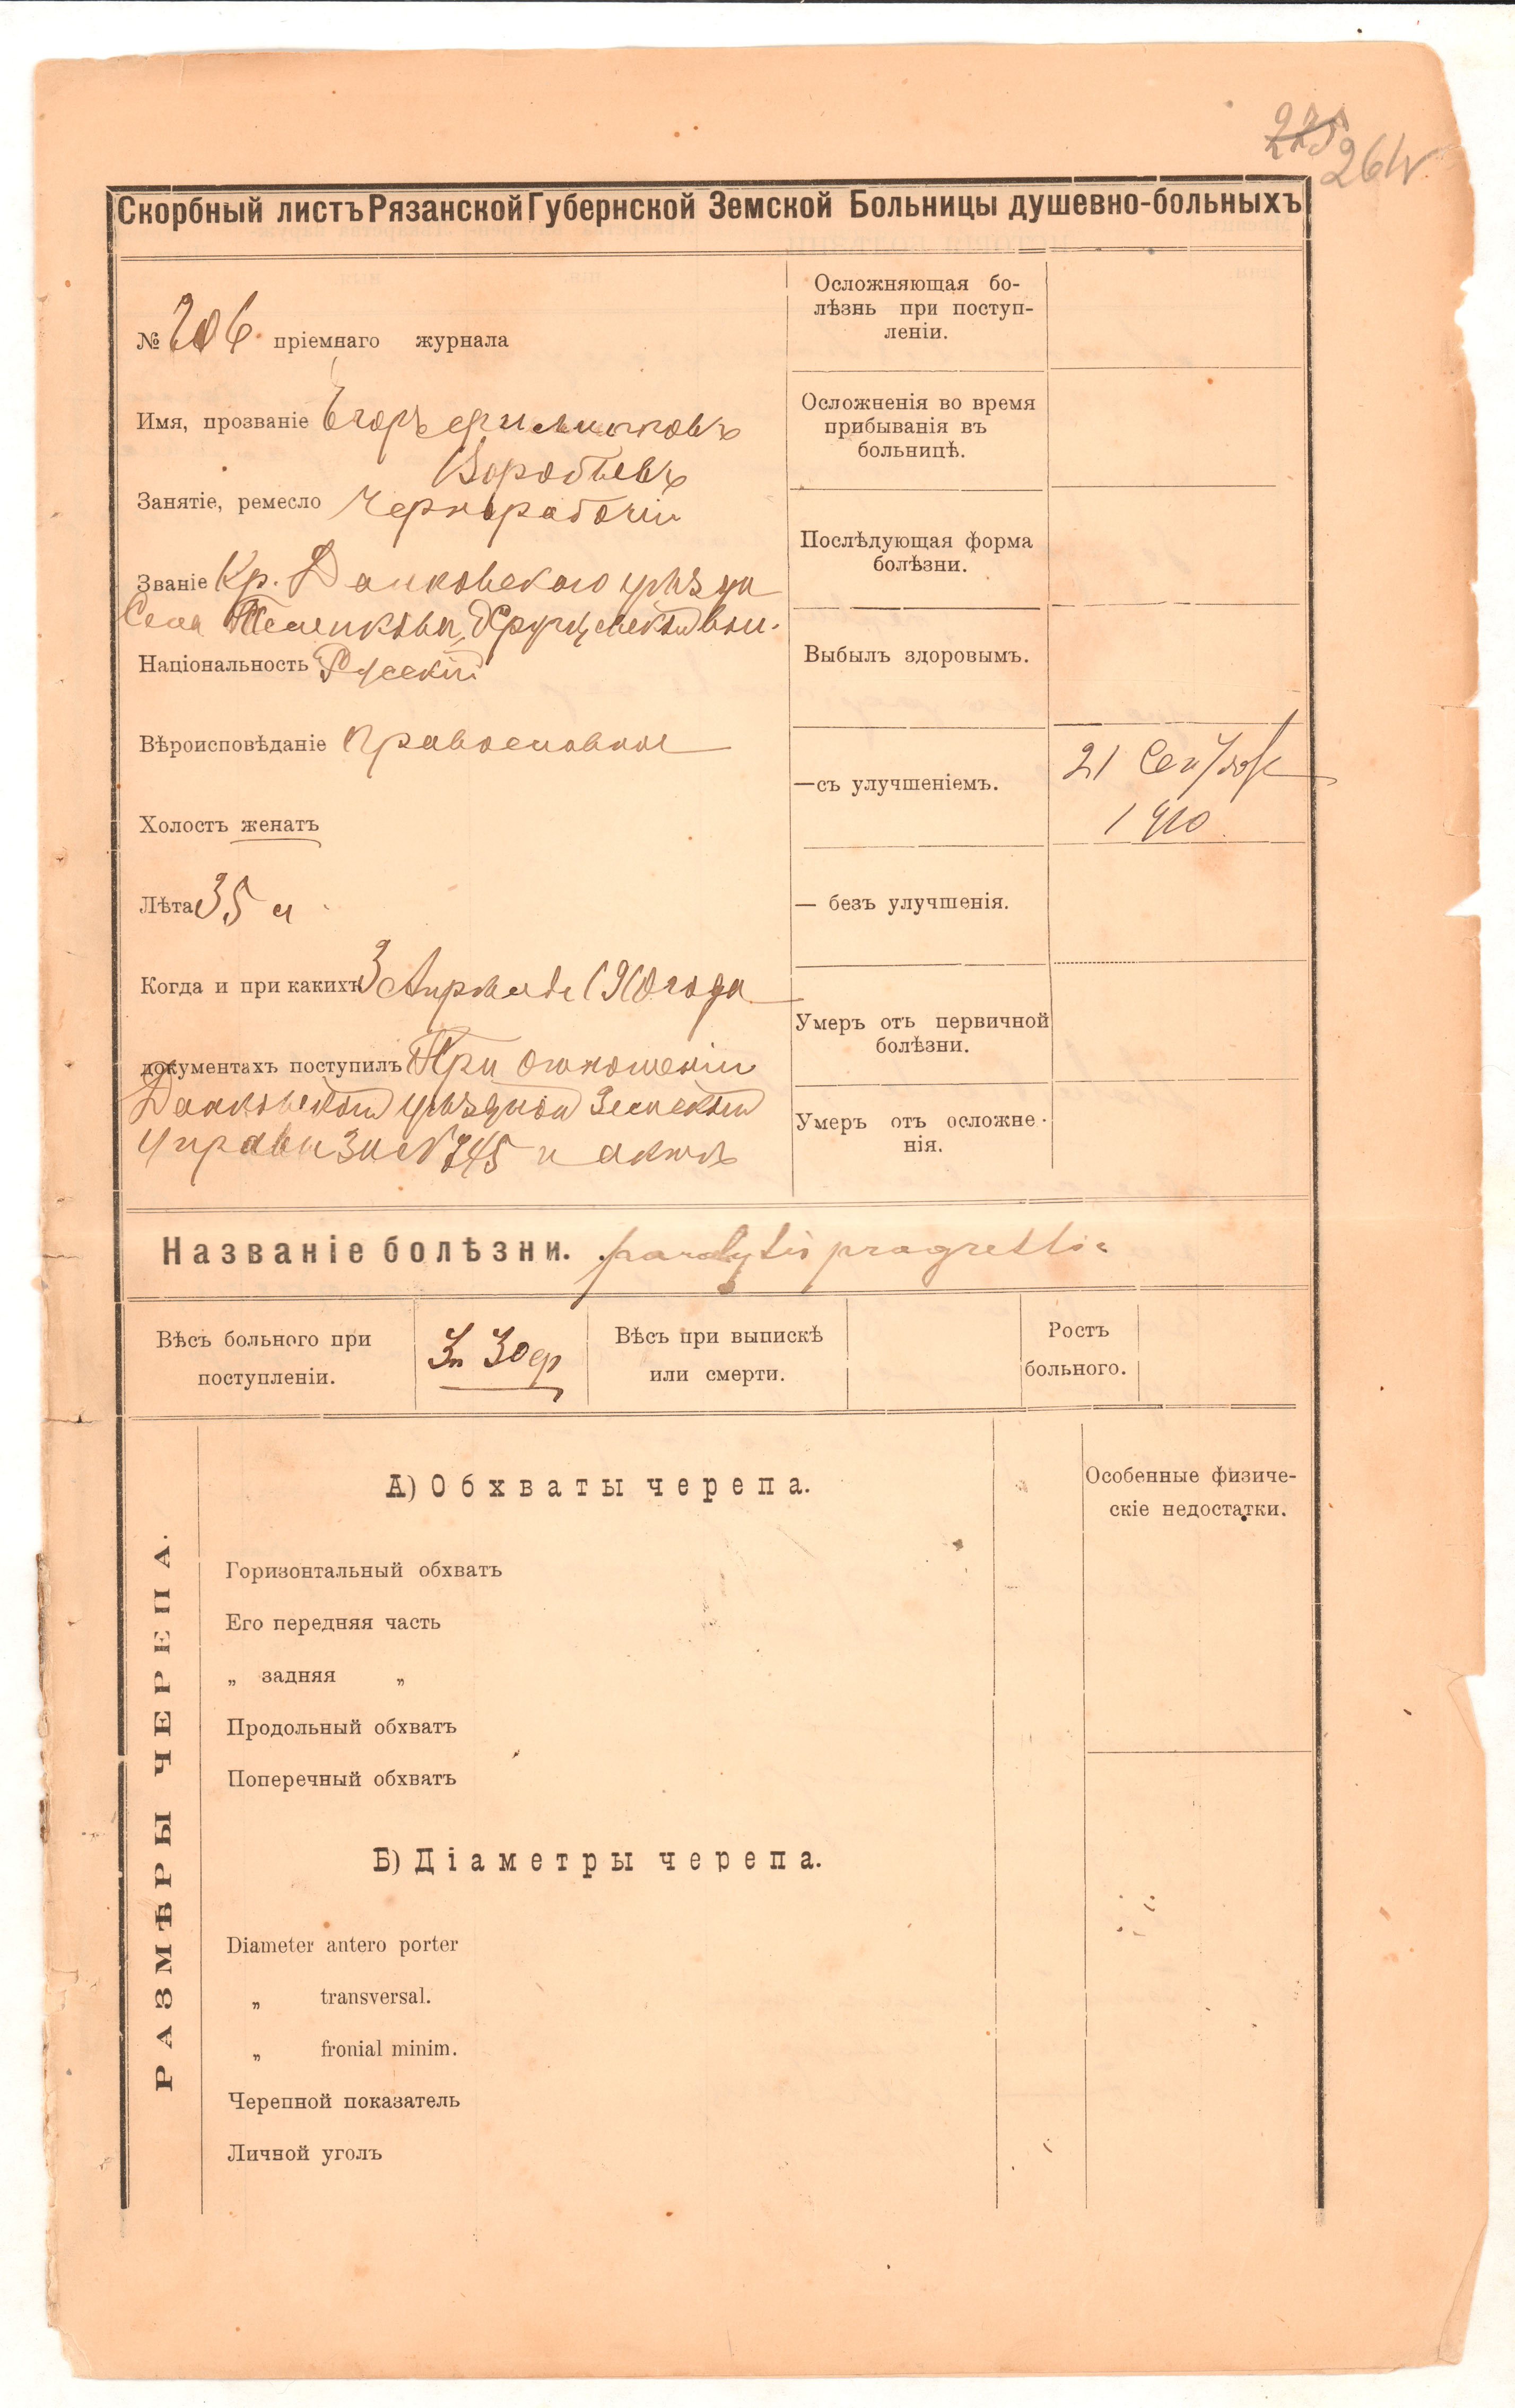 225
264
Скорбный листъ Рязанской Губернской Земской Больницы душевно-больныхъ
№ 206. пріемнаго журнала
Имя, прозваніе Егоръ Филипповъ
Воробьевъ
Занятіе, ремесло Чернорабочій
Званіе Кр. Данковскаго уѣзда
Села вол.
Національность Русскій
Вѣроисповѣданіе Православное
Холостъ женатъ
Лѣта 35 л
Когда и при какихъ 3 Апрѣля 1910 года
документахъ поступилъ При отношеніи
Данковской уѣздной Земской
Управы за № 745 и актѣ
Осложняющая бо-
лѣзнь при поступ-
леніи.
Осложненія во время
прибыванія въ
больницѣ.
Послѣдующая форма
болѣзни.
Выбылъ здоровымъ.
—съ улучшеніемъ. 21 Сентября
1910
— безъ улучшенія.
Умеръ отъ первичной
болѣзни.
Умеръ отъ осложне-
нія.
Названіе болѣзни. paralysis progressiva
Вѣсъ больного при
поступленіи.
3п 30ф
Вѣсъ при выпискѣ
или смерти.
Ростъ
больного.
РАЗМѢРЫ ЧЕРЕПА.
А) Обхваты черепа.
Горизонтальный обхватъ
Его передняя часть
„ задняя „
Продольный обхватъ
Поперечный обхватъ
Б) Діаметры черепа.
Diameter antero porter
„ transversal.
„ fronial minim.
Черепной показатель
Личной уголъ
Особенные физиче-
скіе недостатки.